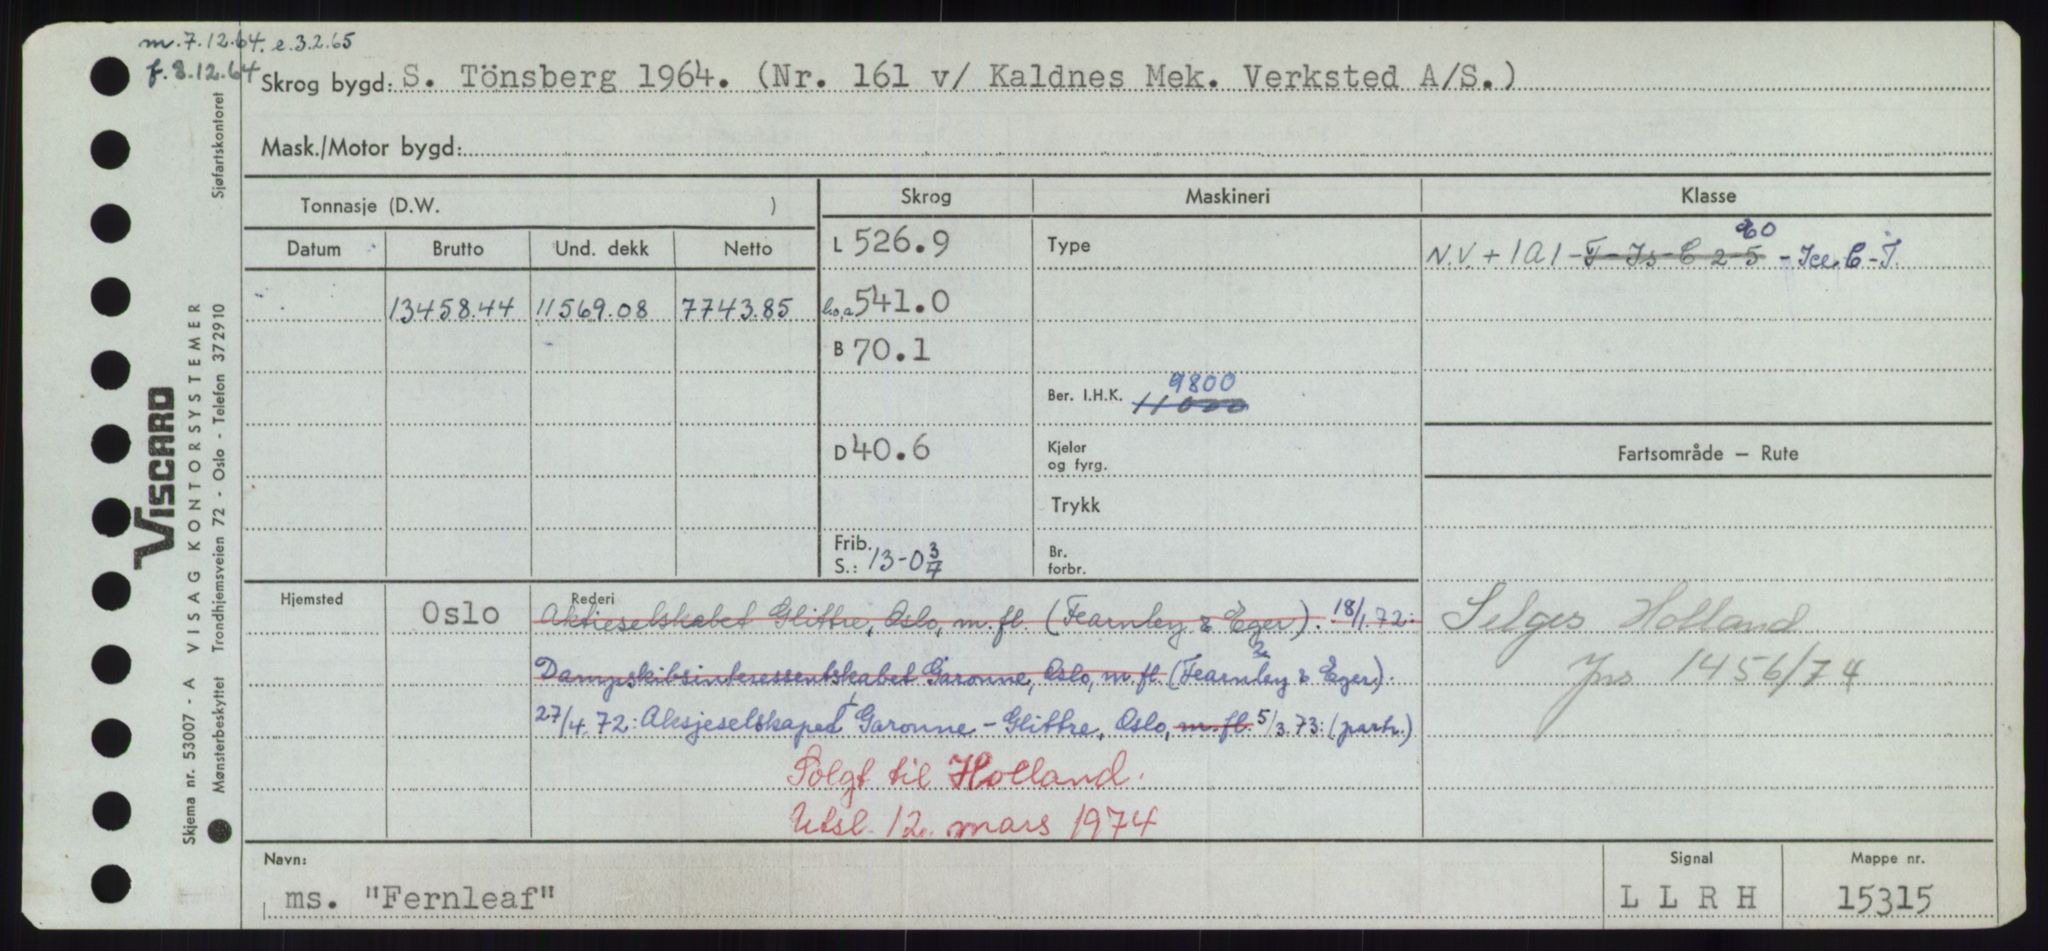 m. 7.12.64. e.3.2.65
f. 8.12.64
Skrog bygd: S. Tönsberg 1964. (Nr. 161 v/ Kaldnes Mek. Verksted A/S.)
Mask./Motor bygd:
Tonnasje (D.W. )
Skrog
Maskineri
Klasse
Datum Brutto Und. dekk Netto
13458.44 11569.08 7743.85
L 526.9
541.0
B 70.1
D 40.6
Frib.
S.: 13-0 3/4
Type
Ber. I.H.K. 9800
11000
Kjeler
og fyrg.
Trykk
Br.
forbr.
N.V. + 1A1 - F-Is-C 2-5 - Ice C-T.
Fartsområde – Rute
Selges Holland
1456/74
Hjemsted Oslo
Rederi
Aktieselskabet Glittre, Oslo, m.fl. (Fearnley & Eger). 18/1.72:
Dampskibsinteressentskabet Garonne, Oslo, m.fl. (Fearnley & Eger).
27/4.72: Aksjeselskapet Garonne - Glittre, Oslo, m.fl. 5/3.73: (partr.)
Solgt til Holland.
Utsl. 12. mars 1974
Navn:
ms. "Fernleaf"
Signal
LLRH
Mappe nr.
15315
VISCARD
Skjema nr. 53007 - A VISAG KONTORSYSTEMER
Mønsterbeskyttet Trondhjemsveien 72 - Oslo - Telefon 372910
Sjøfartskontoret